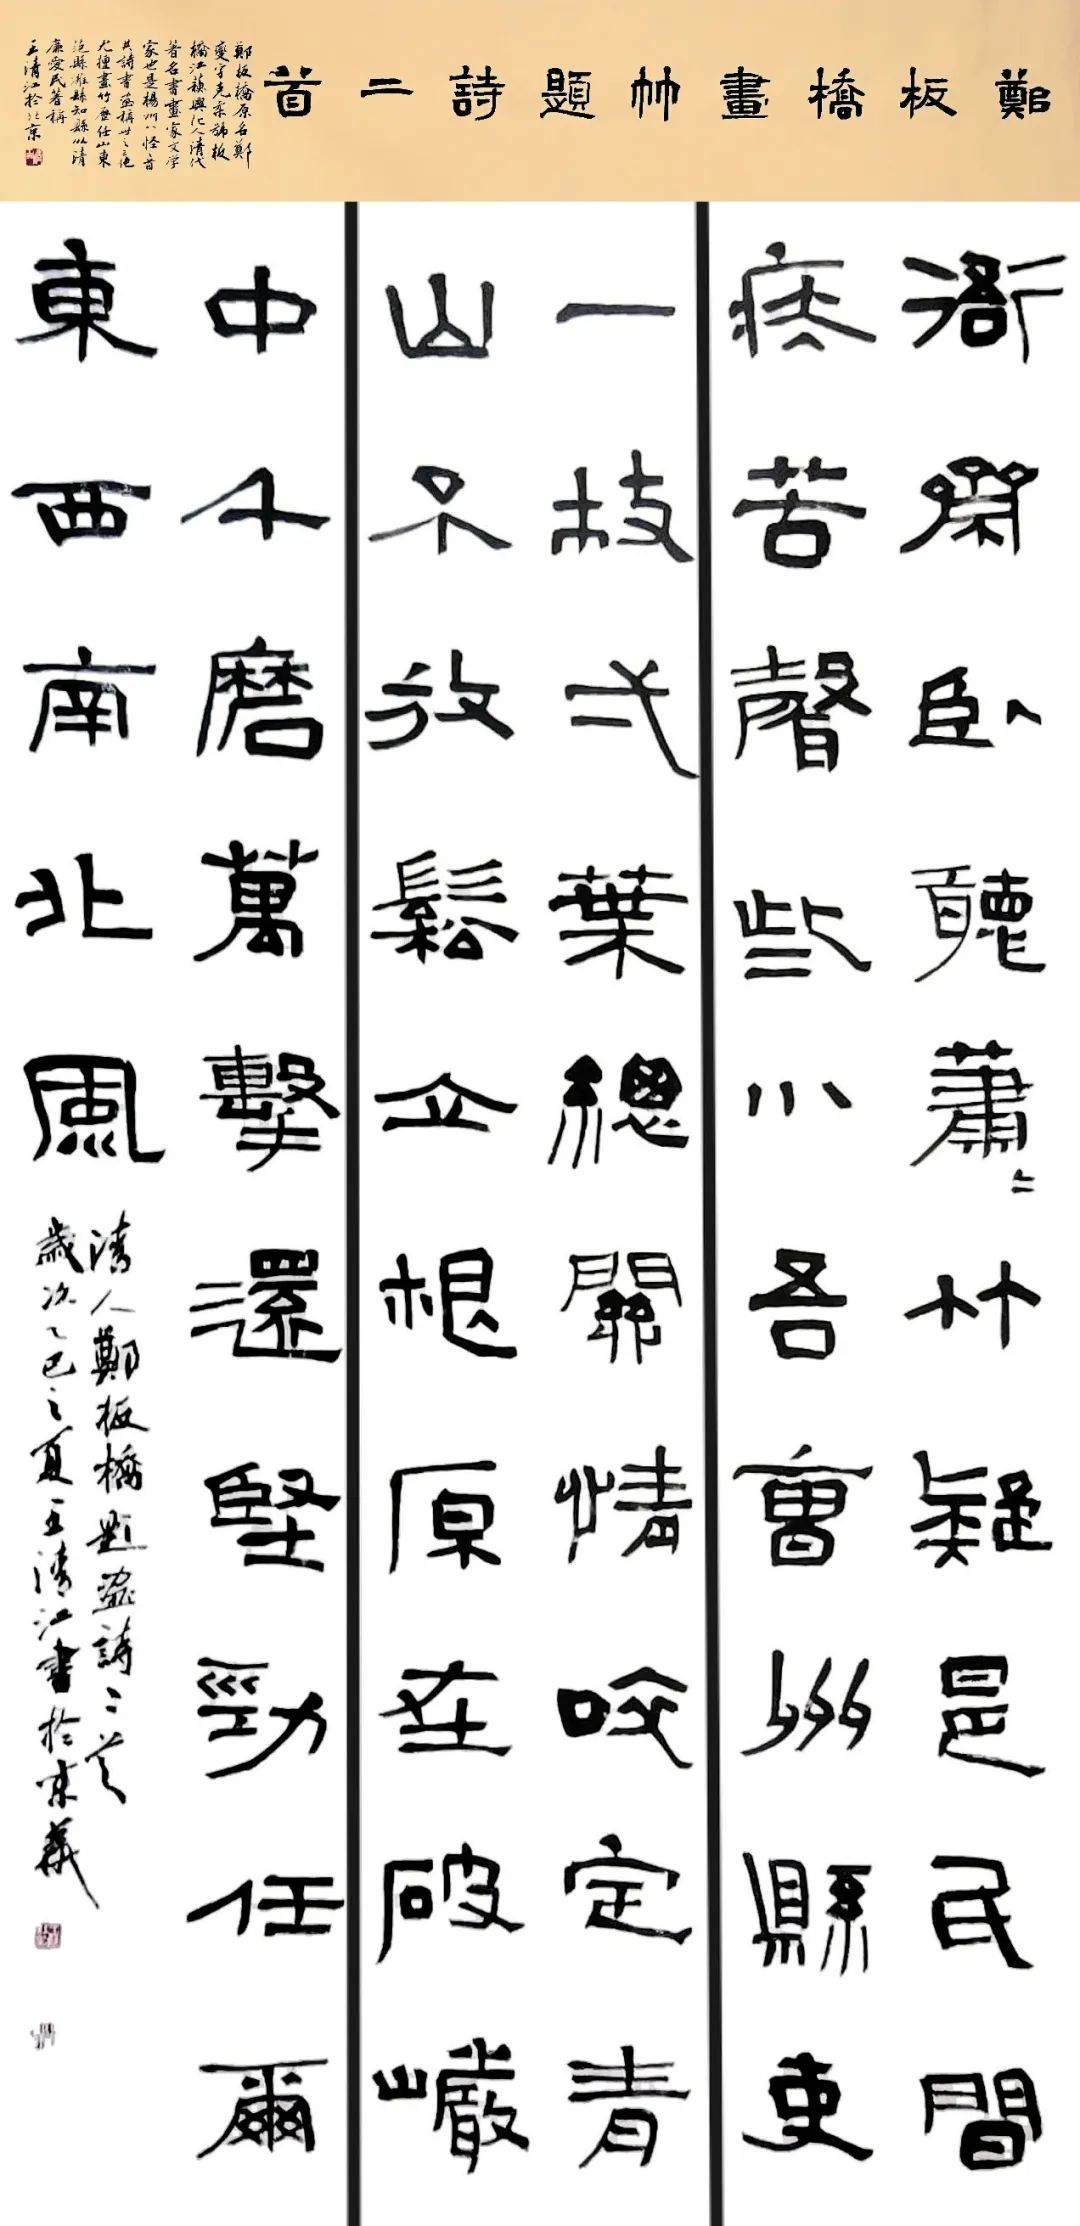 鄭板橋畫竹題詩二首
鄭板橋原名鄭
燮字克柔號板
橋江蘇興化人清代
著名書畫家文學
家也是楊州八怪之首
其詩書畫稱世三絕
尤擅畫竹歷任山東
范縣濰縣知縣以清
廉愛民著稱
王清江於北京
衙齋臥聽蕭〻竹疑是民間
疾苦聲些小吾曹州縣吏
一枝弌葉總關情咬定青
山不放鬆立根原在破巖
中千磨萬擊還堅勁任爾
東西南北風
清人鄭板橋題畫詩二首
歲次乙巳之夏王清江書於京華